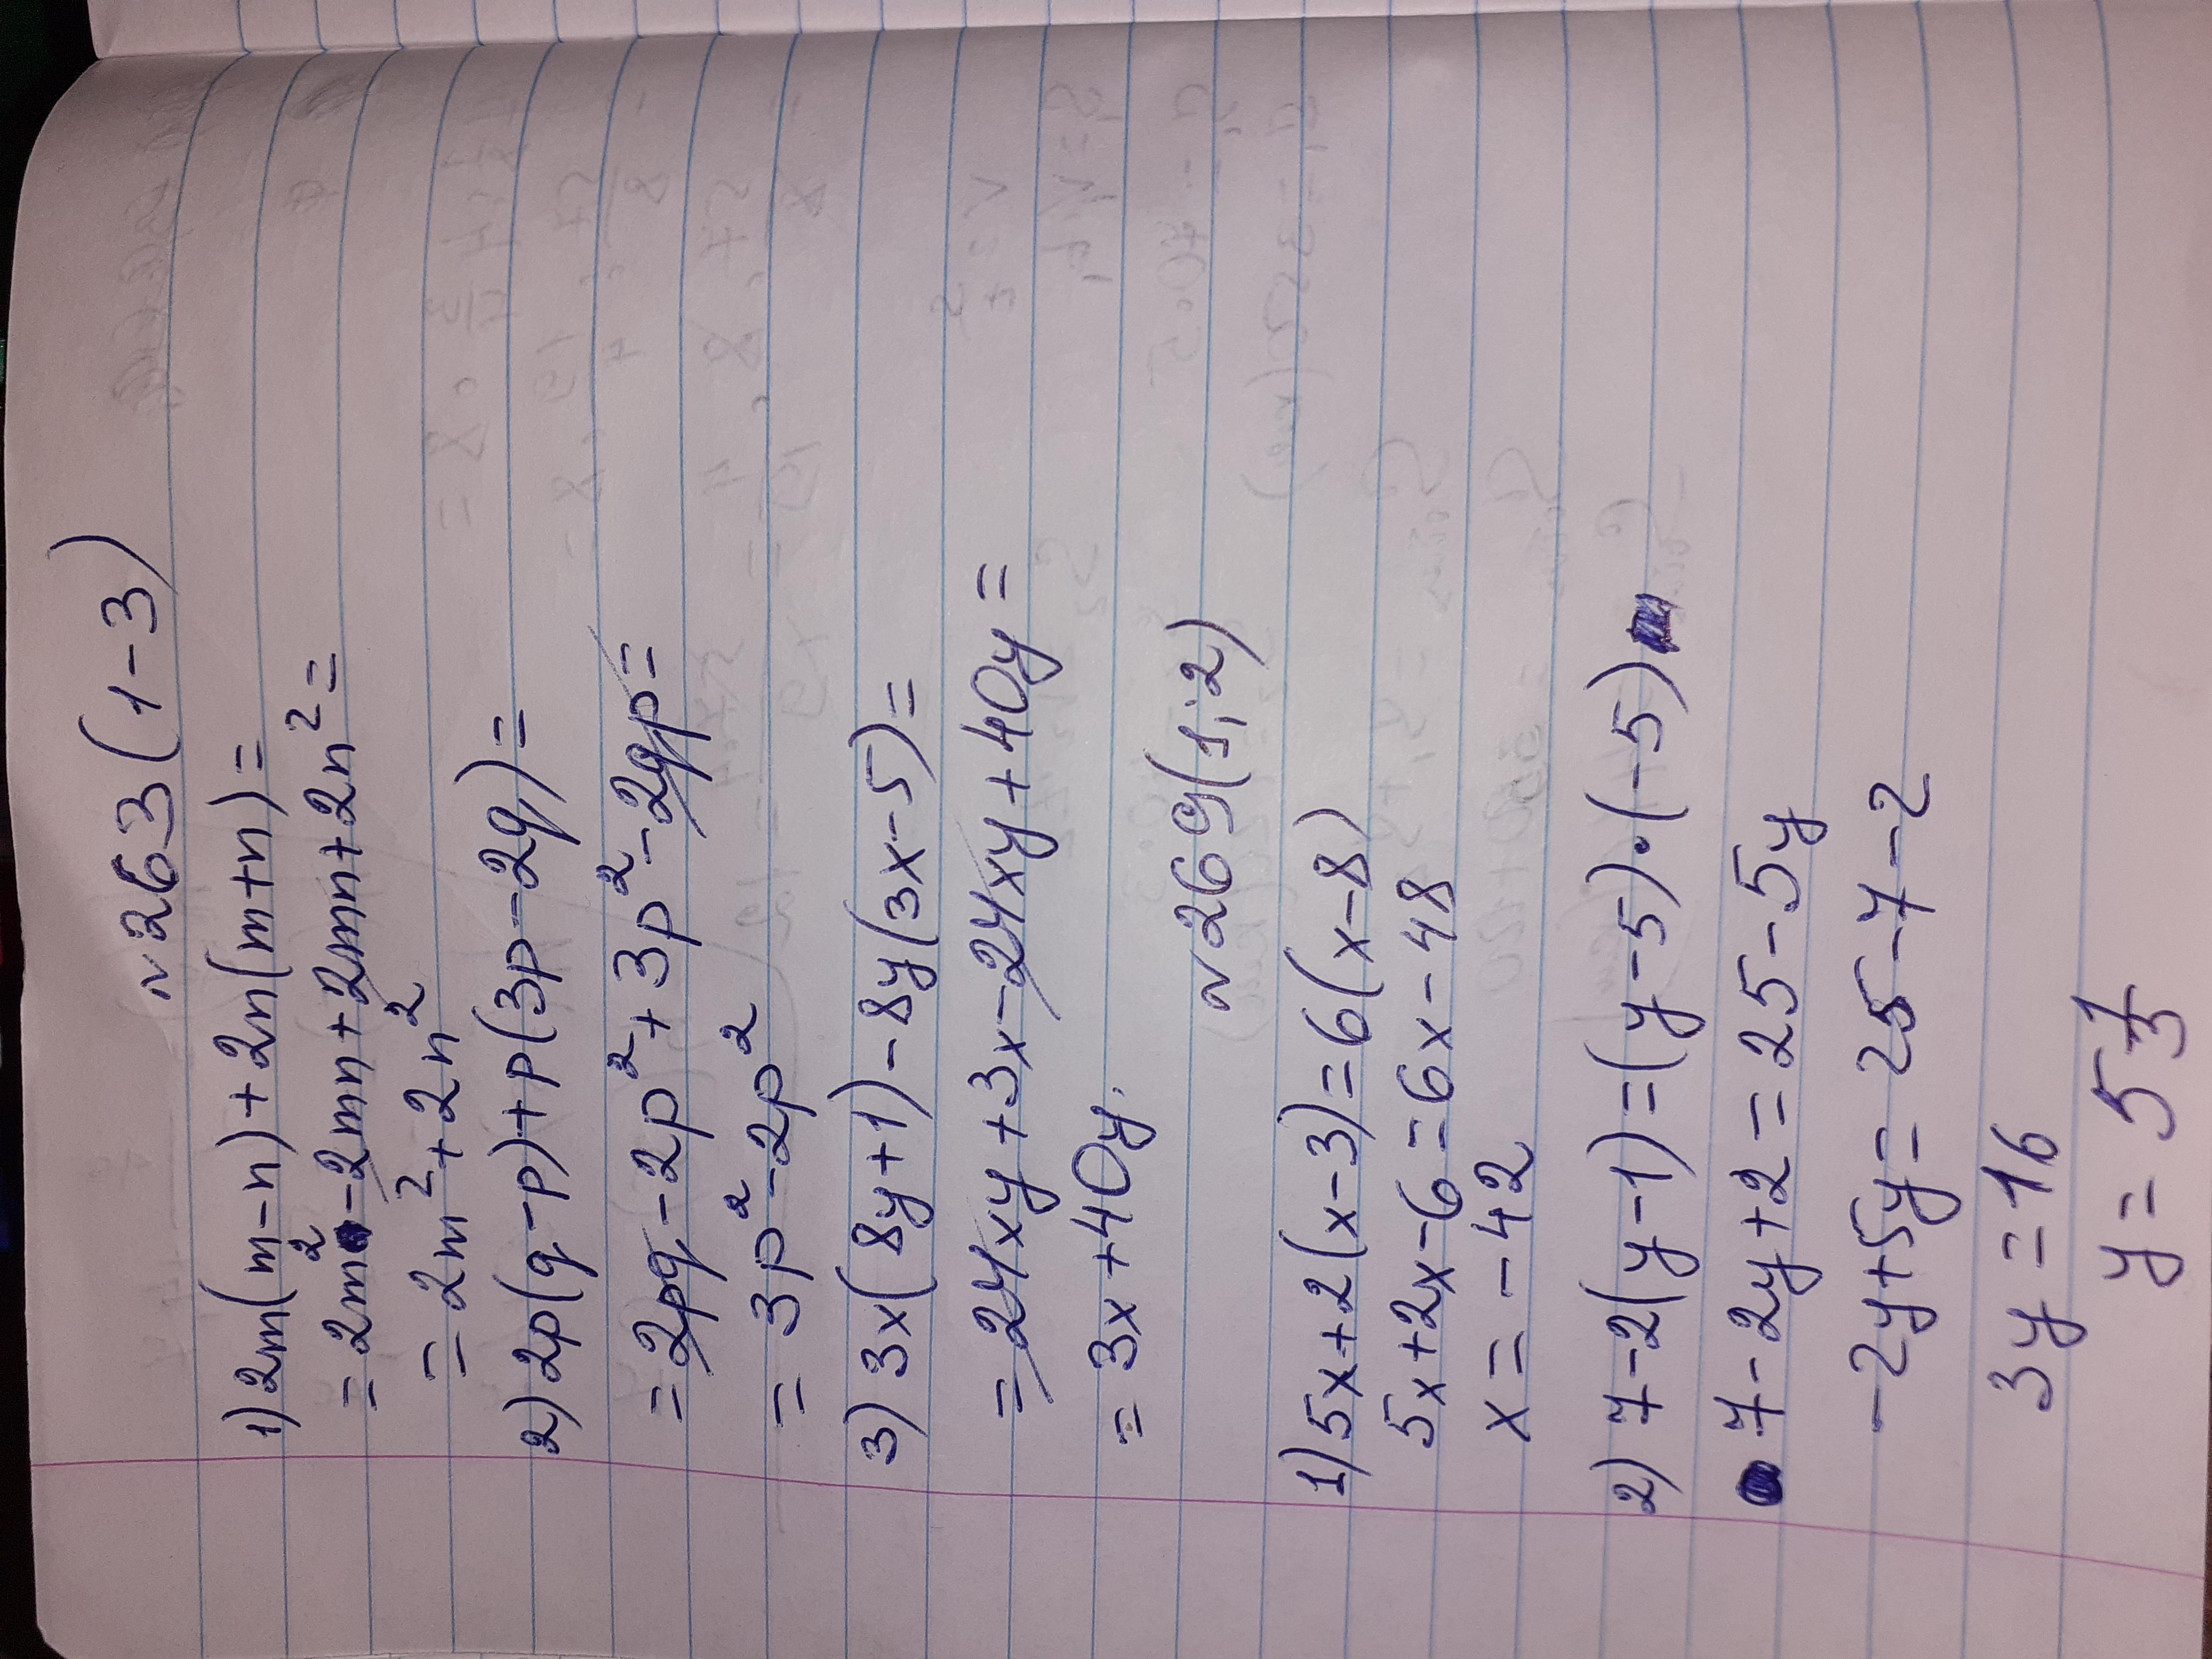 № 263 (1-3)
1) 2m(m-n)+2n(m+n)=
=2m²-2mn+2mn+2n²=
=2m²+2n²
2) 2p(q-p)+p(3p-2q)=
=2pq-2p²+3p²-2qp=
=3p²-2p²
3) 3x(8y+1)-8y(3x-5)=
=24xy+3x-24xy+40y=
=3x+40y.
№ 269(1;2)
1) 5x+2(x-3)=6(x-8)
5x+2x-6=6x-48
x=-42
2) 7-2(y-1)=(y-5)·(-5)
7-2y+2=25-5y
-2y+5y=25-7-2
3y=16
y=5 1/3